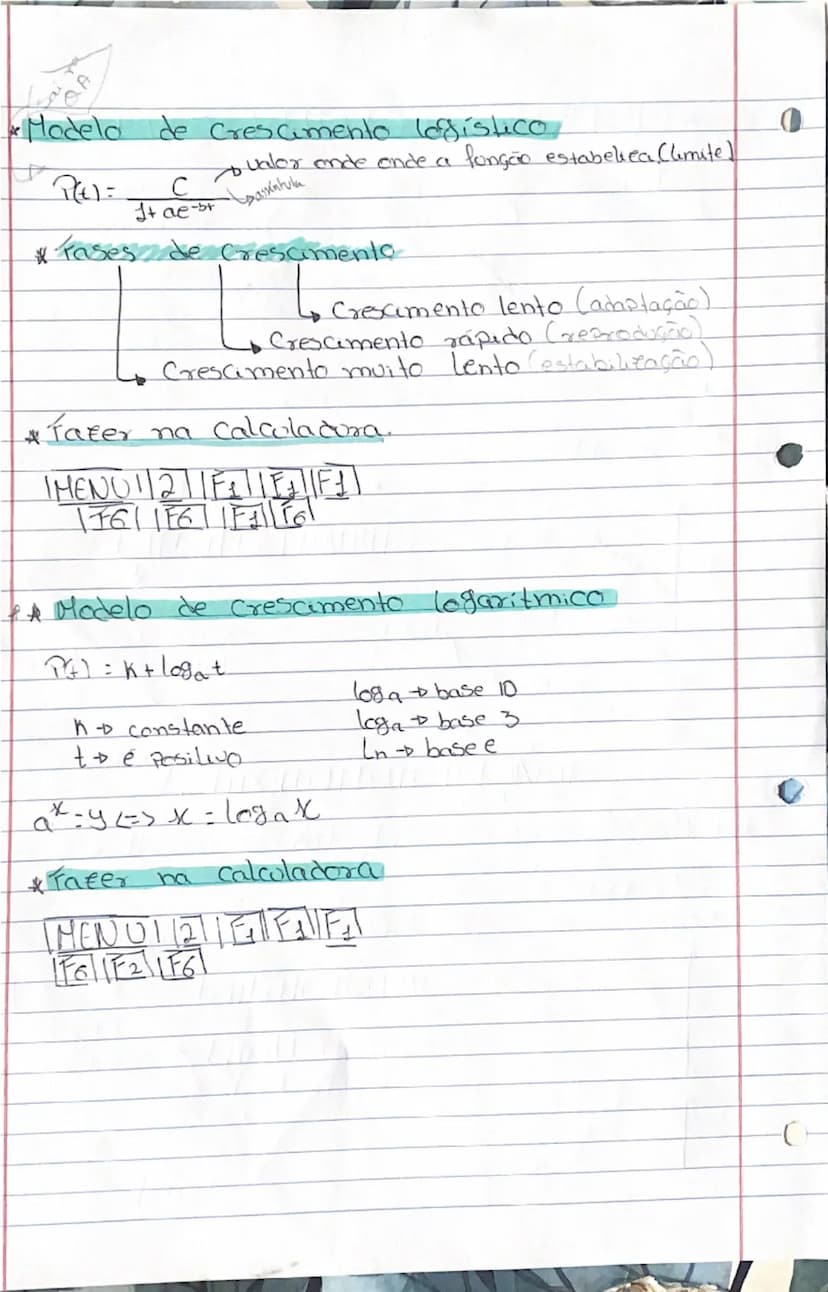 * Modelo de crescimento logístico
→ valor onde onde a função estabeliza (limite)
P(t) = C / 1 + ae^-bt
↳ assíntota
* Fases de crescimento
↳ Crescimento lento (adaptação)
↳ Crescimento rápido (reprodução)
↳ Crescimento muito lento (estabilização)
* Fazer na calculadora.
|MENU| |2| |F1| |F1| |F1|
|F6| |F6| |F1| |F6|
* Modelo de crescimento logarítmico
P(t) = k + log_a t
log_a → base 10
k → constante
log_a → base 3
t → é positivo
Ln → base e
a^x = y <=> x = log_a x
* Fazer na calculadora
|MENU| |2| |F1| |F1| |F1|
|F6| |F2| |F6|